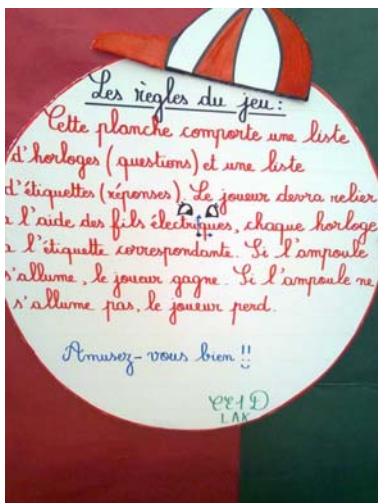 Les règles du jeu :
Cette planche comporte une liste
d'horloges (questions) et une liste
d'étiquettes (réponses). Le joueur devra relier
à l'aide des fils électriques, chaque horloge
à l'étiquette correspondante. Si l'ampoule
s'allume, le joueur gagne. Si l'ampoule ne
s'allume pas, le joueur perd.
Amusez-vous bien !!
CE1D
LAK